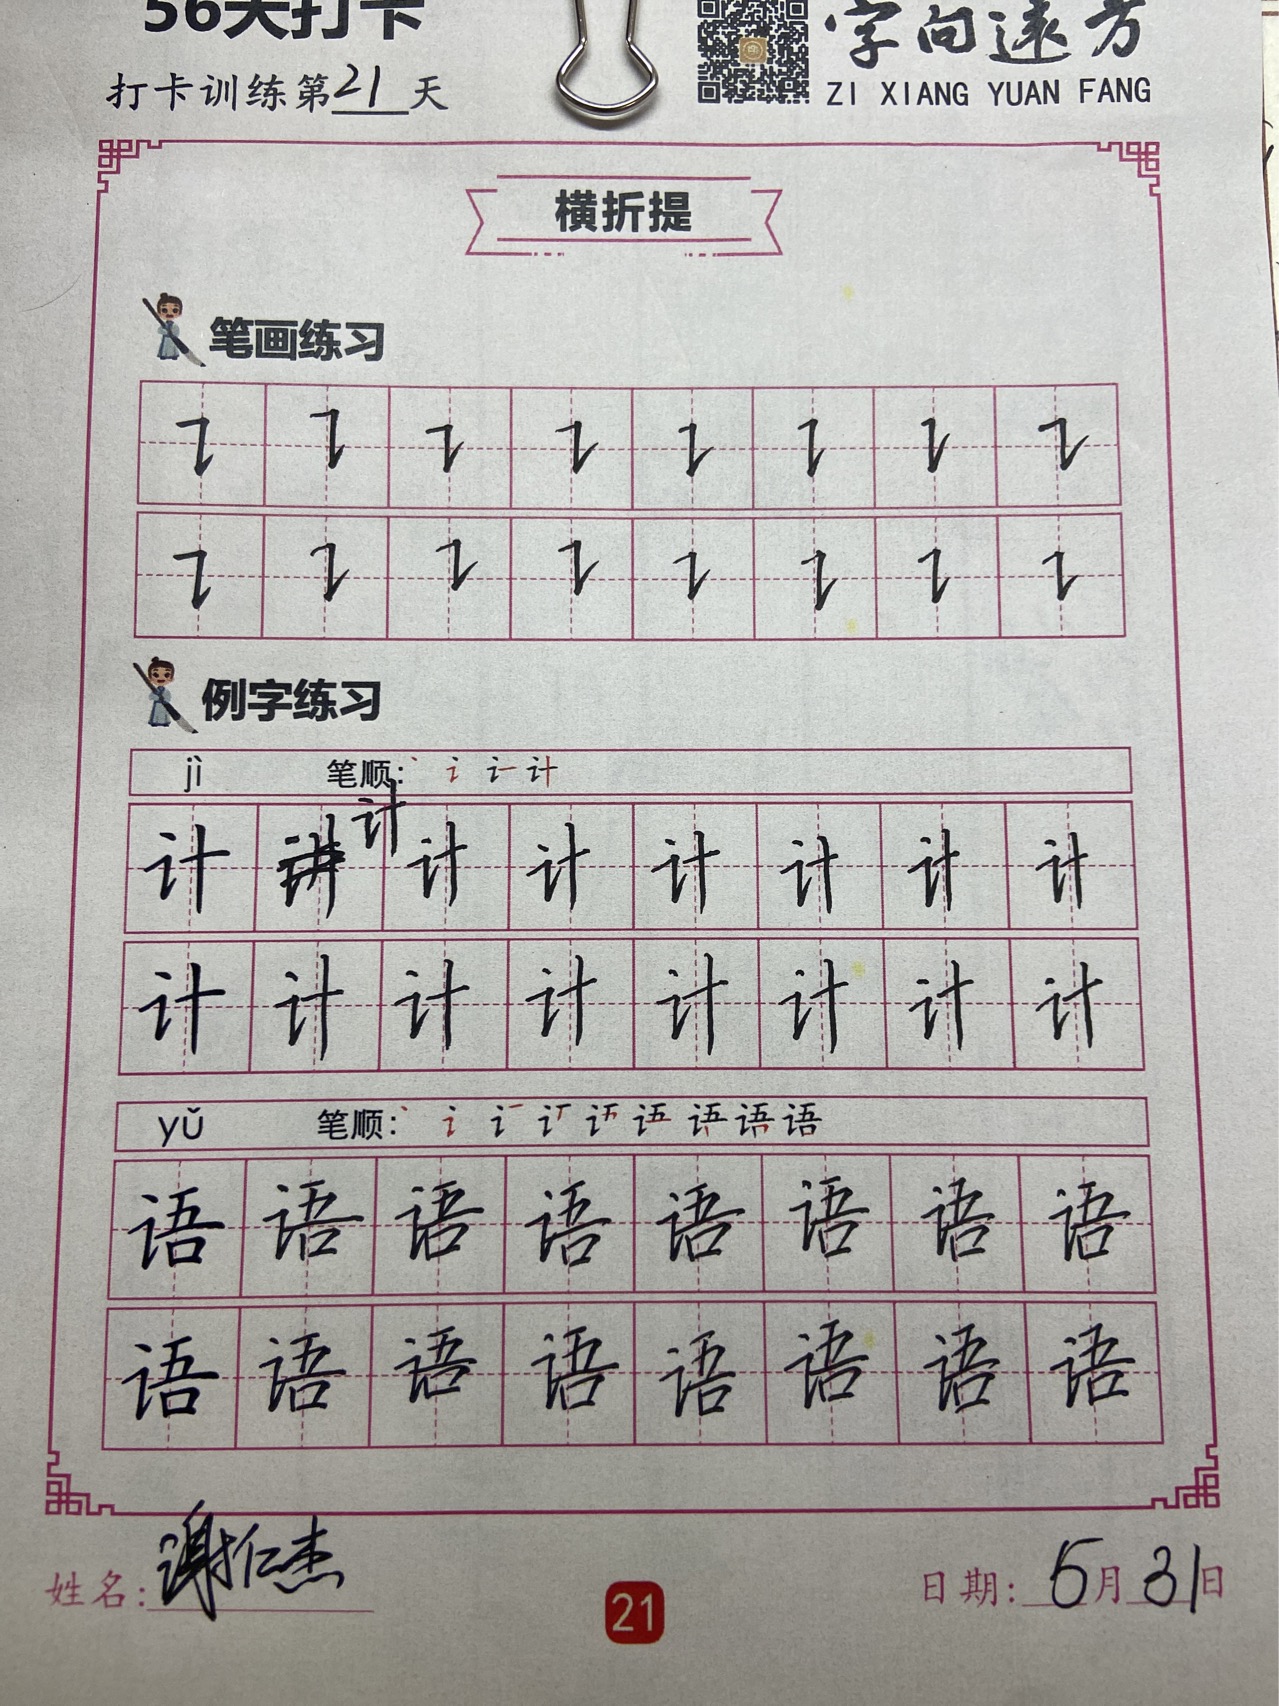 56天打卡
字向远方
打卡训练第21天
ZI XIANG YUAN FANG
横折提
笔画练习
㇊ ㇊ ㇊ ㇊ ㇊ ㇊ ㇊ ㇊
㇊ ㇊ ㇊ ㇊ ㇊ ㇊ ㇊ ㇊
例字练习
jì 笔顺:
计 计 计 计 计 计 计 计
计 计 计 计 计 计 计 计
yǔ 笔顺:
语 语 语 语 语 语 语 语
语 语 语 语 语 语 语 语
姓名:谢仁杰
21
日期:5月31日